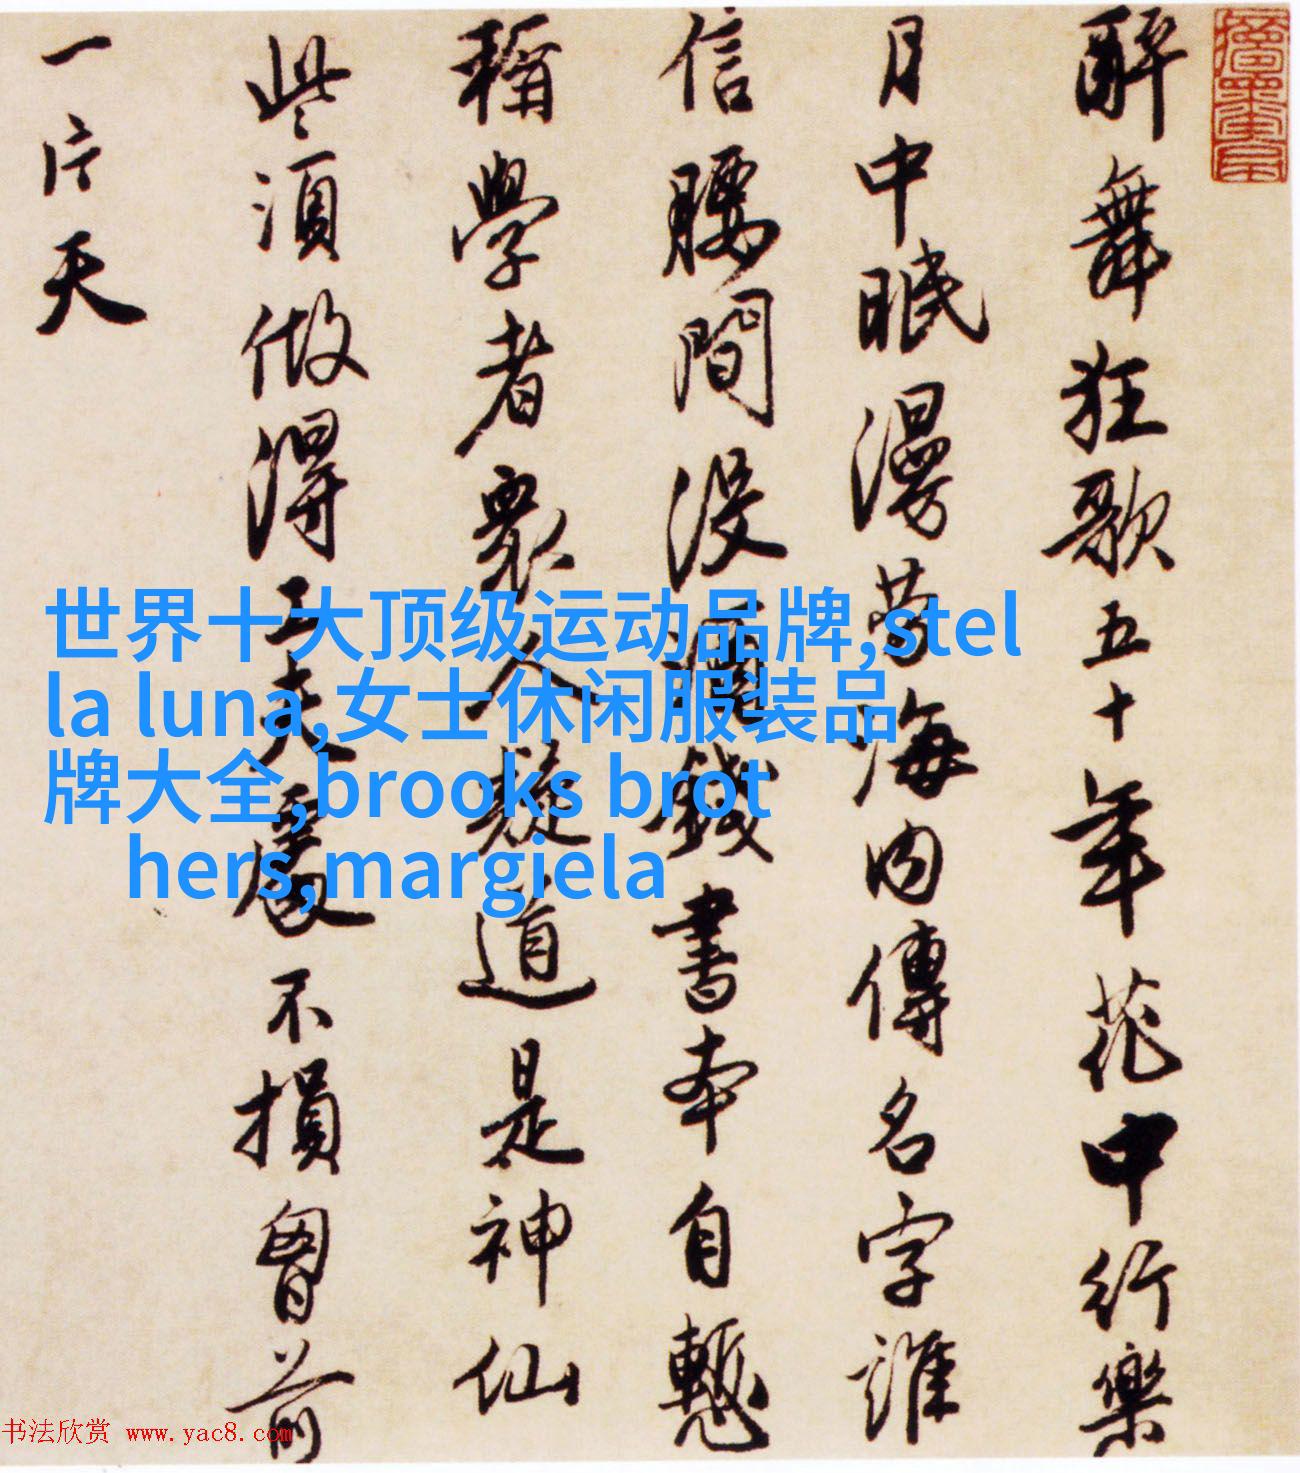 醉舞狂歌五十年花中行樂
月中眠漫勞海內傳名字誰
信腰間没酒錢書本自慙
稱學者衆人疑道是神仙
些須做得工夫處不損胷前
一片天
世界十大顶级运动品牌,stel
la luna,女士休闲服装品
牌大全,brooks brot
hers,margiela
书法欣赏 www.yac8.com